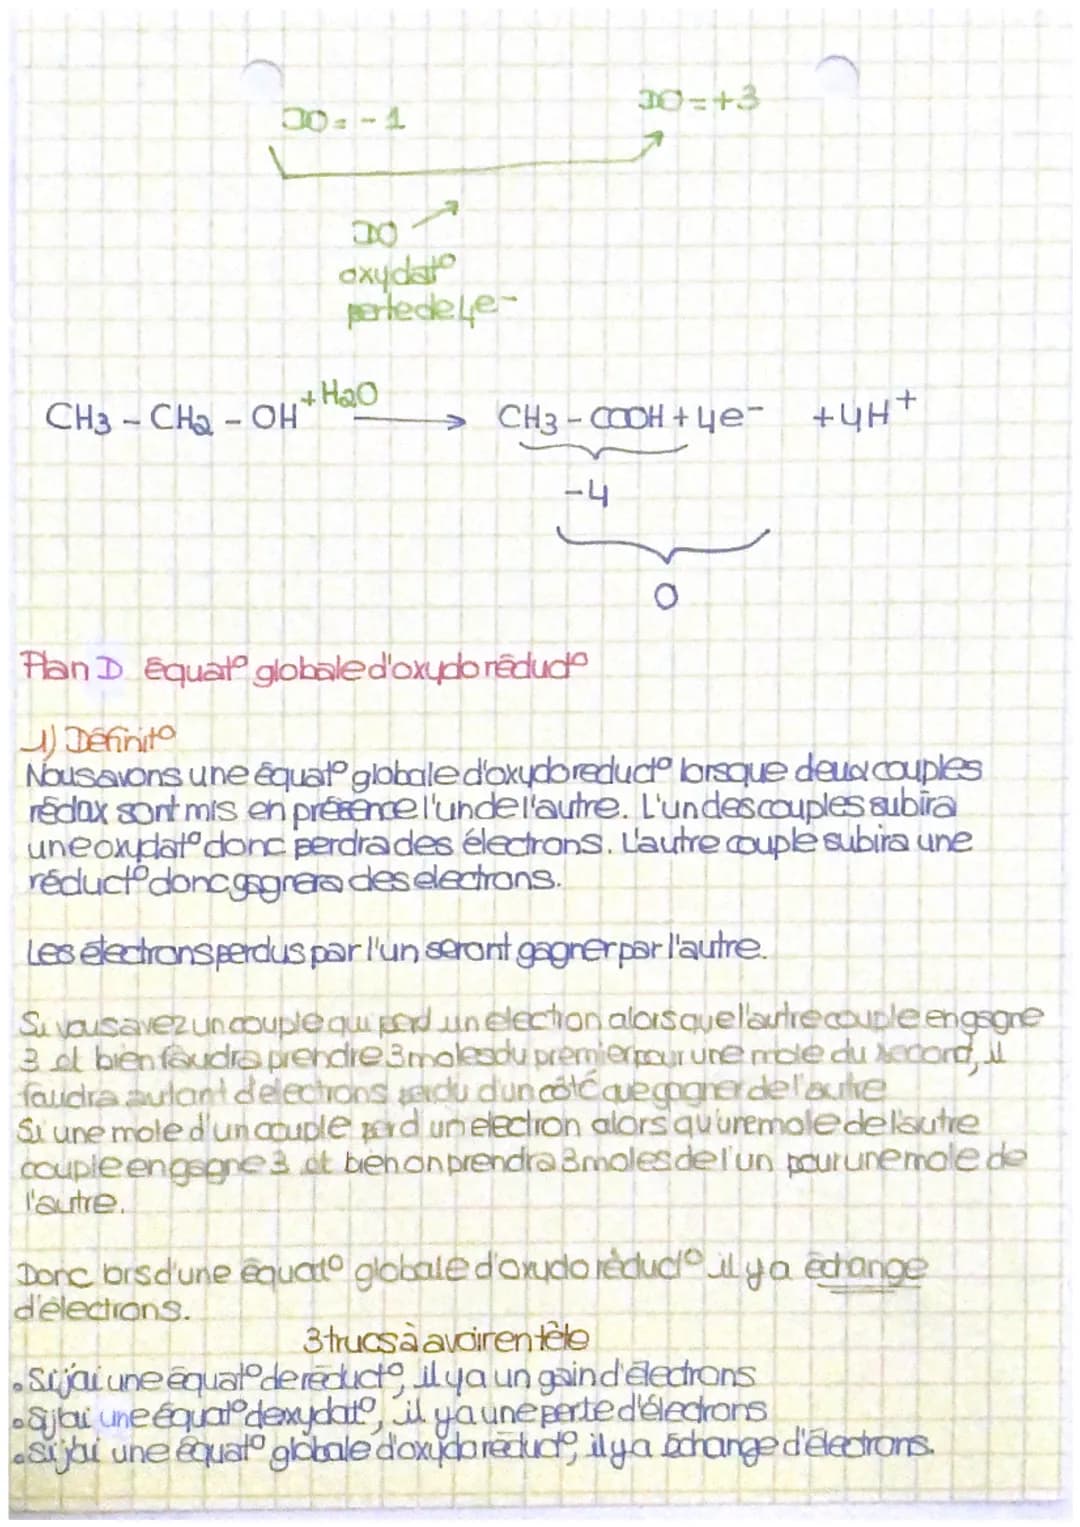 DO = -1
DO = +3
DO
oxydat°
perte de 4e-
CH3 - CH2 - OH + H2O → CH3 - COOH + 4e- + 4H+
-4
0
Plan D Equat° globale d'oxydo réduct°
1) Définit°
Nous avons une équat° globale d'oxydo reduct° lorsque deux couples
rédox sont mis en présence l'un de l'autre. L'un des couples subira
une oxydat° donc perdra des électrons. L'autre couple subira une
réduct° donc gagnera des electrons.
Les électrons perdus par l'un seront gagner par l'autre.
Si vous avez un couple qui perd un electron alors que l'autre couple en gagne
3 et bien faudra prendre 3 moles du premier pour une mole du second, il
faudra autant d'electrons perdu d'un côté que gagner de l'autre
Si une mole d'un couple perd un electron alors qu'une mole de l'autre
couple en gagne 3 et bien on prendra 3 moles de l'un pour une mole de
l'autre.
Donc lors d'une équat° globale d'oxydo réduct° il y a échange
d'électrons.
3 trucs à avoir en tête
• Si j'ai une équat° de réduct°, il y a un gain d'électrons
• Si j'ai une équat° d'exydat°, il y a une perte d'électrons
• Si j'ai une équat° globale d'oxydo réduct°, il y a échange d'électrons.